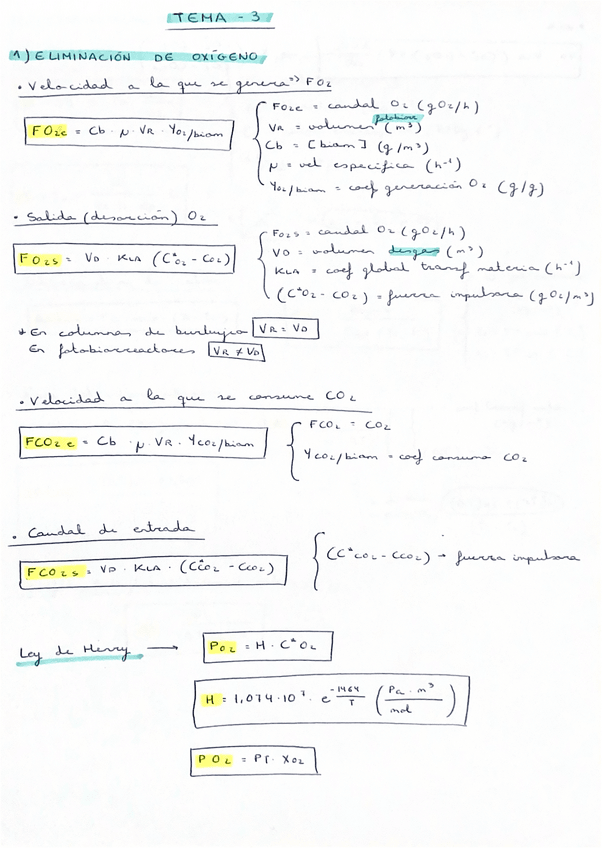 TEMA - 3
1) ELIMINACIÓN DE OXÍGENO
• Velocidad a la que se genera => FO2
FO2e = Cb · μ · VR · YO2/biom
FO2e = caudal O2 (gO2/h)
VR = volumen fotobiorr (m³)
Cb = [biom] (g/m³)
μ = vel específica (h⁻¹)
YO2/biom = coef generación O2 (g/g)
• Salida (desorción) O2
FO2s = VD · KLA (C*O2 - CO2)
FO2s = caudal O2 (gO2/h)
VD = volumen desgas (m³)
KLA = coef global transf materia (h⁻¹)
(C*O2 - CO2) = fuerza impulsora (gO2/m³)
* En columnas de burbujeo VR = VD
En fotobiorreactores VR ≠ VD
• Velocidad a la que se consume CO2
FCO2e = Cb · μ · VR · YCO2/biom
FCO2 = CO2
YCO2/biom = coef consumo CO2
• Caudal de entrada
FCO2s = VD · KLA · (C*CO2 - CCO2)
(C*CO2 - CCO2) → fuerza impulsora
Ley de Henry → PO2 = H · C*O2
H = 1,074·10⁷ · e^(-1464/T) (Pa · m³/mol)
PO2 = PT · XO2